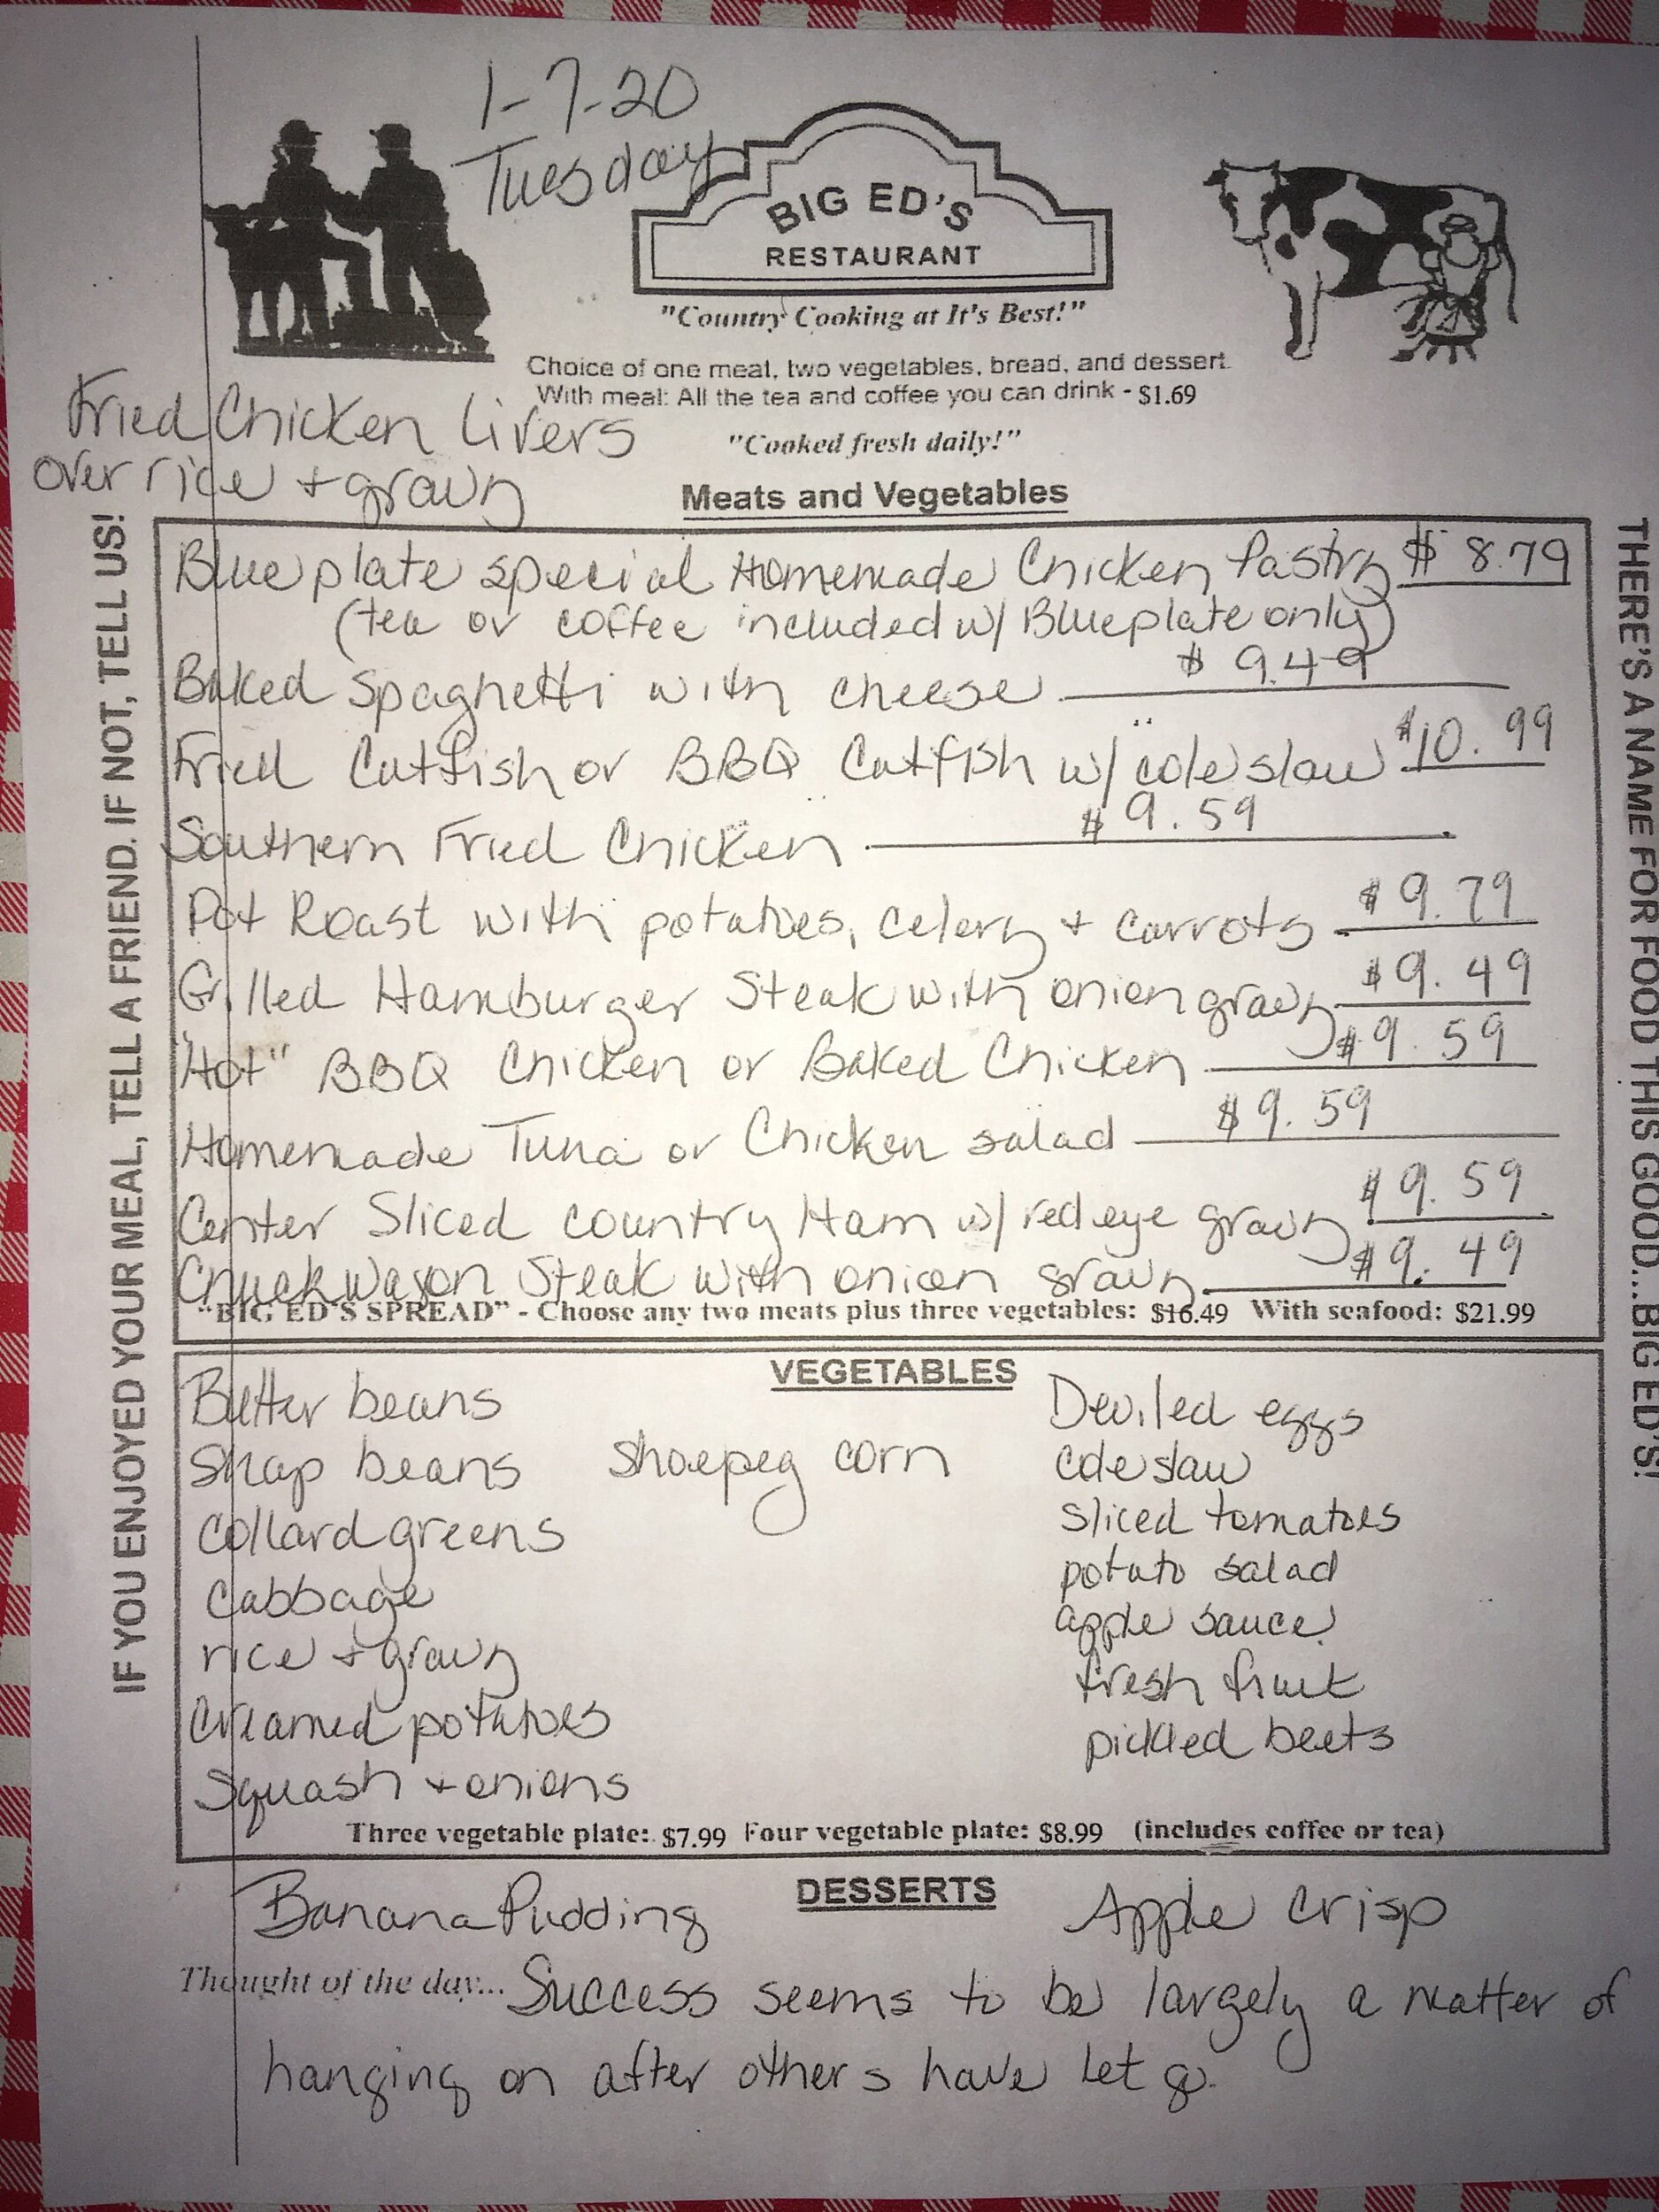 1-7-20
Tuesday
BIG ED'S
RESTAURANT
"Country Cooking at It's Best!"
Choice of one meat, two vegetables, bread, and dessert.
With meal: All the tea and coffee you can drink - $1.69
"Cooked fresh daily!"
Fried Chicken Livers
over rice + gravy
Meats and Vegetables
Blue plate special Homemade Chicken Pastry $ 8.79
(tea or coffee included w/ Blueplate only)
Baked Spaghetti with cheese $ 9.49
Fried Catfish or BBQ Catfish w/ coleslaw $10.99
Southern Fried Chicken $ 9.59
Pot Roast with potatoes, celery + carrots $ 9.79
Grilled Hamburger Steak with onion gravy $9.49
"Hot" BBQ Chicken or Baked Chicken $9.59
Homemade Tuna or Chicken salad $9.59
Center Sliced country Ham w/ redeye gravy $9.59
Chuckwagon Steak with onion gravy $9.49
"BIG ED'S SPREAD" - Choose any two meats plus three vegetables: $16.49 With seafood: $21.99
VEGETABLES
Butter beans
Snap beans
Collard greens
Cabbage
rice + gravy
Creamed potatoes
Squash + onions
Shoepeg corn
Deviled eggs
coleslaw
sliced tomatoes
potato salad
apple sauce
fresh fruit
pickled beets
Three vegetable plate: $7.99 Four vegetable plate: $8.99 (includes coffee or tea)
DESSERTS
Banana Pudding Apple Crisp
Thought of the day... Success seems to be largely a matter of
hanging on after others have let go.
IF YOU ENJOYED YOUR MEAL, TELL A FRIEND. IF NOT, TELL US!
THERE'S A NAME FOR FOOD THIS GOOD...BIG ED'S!